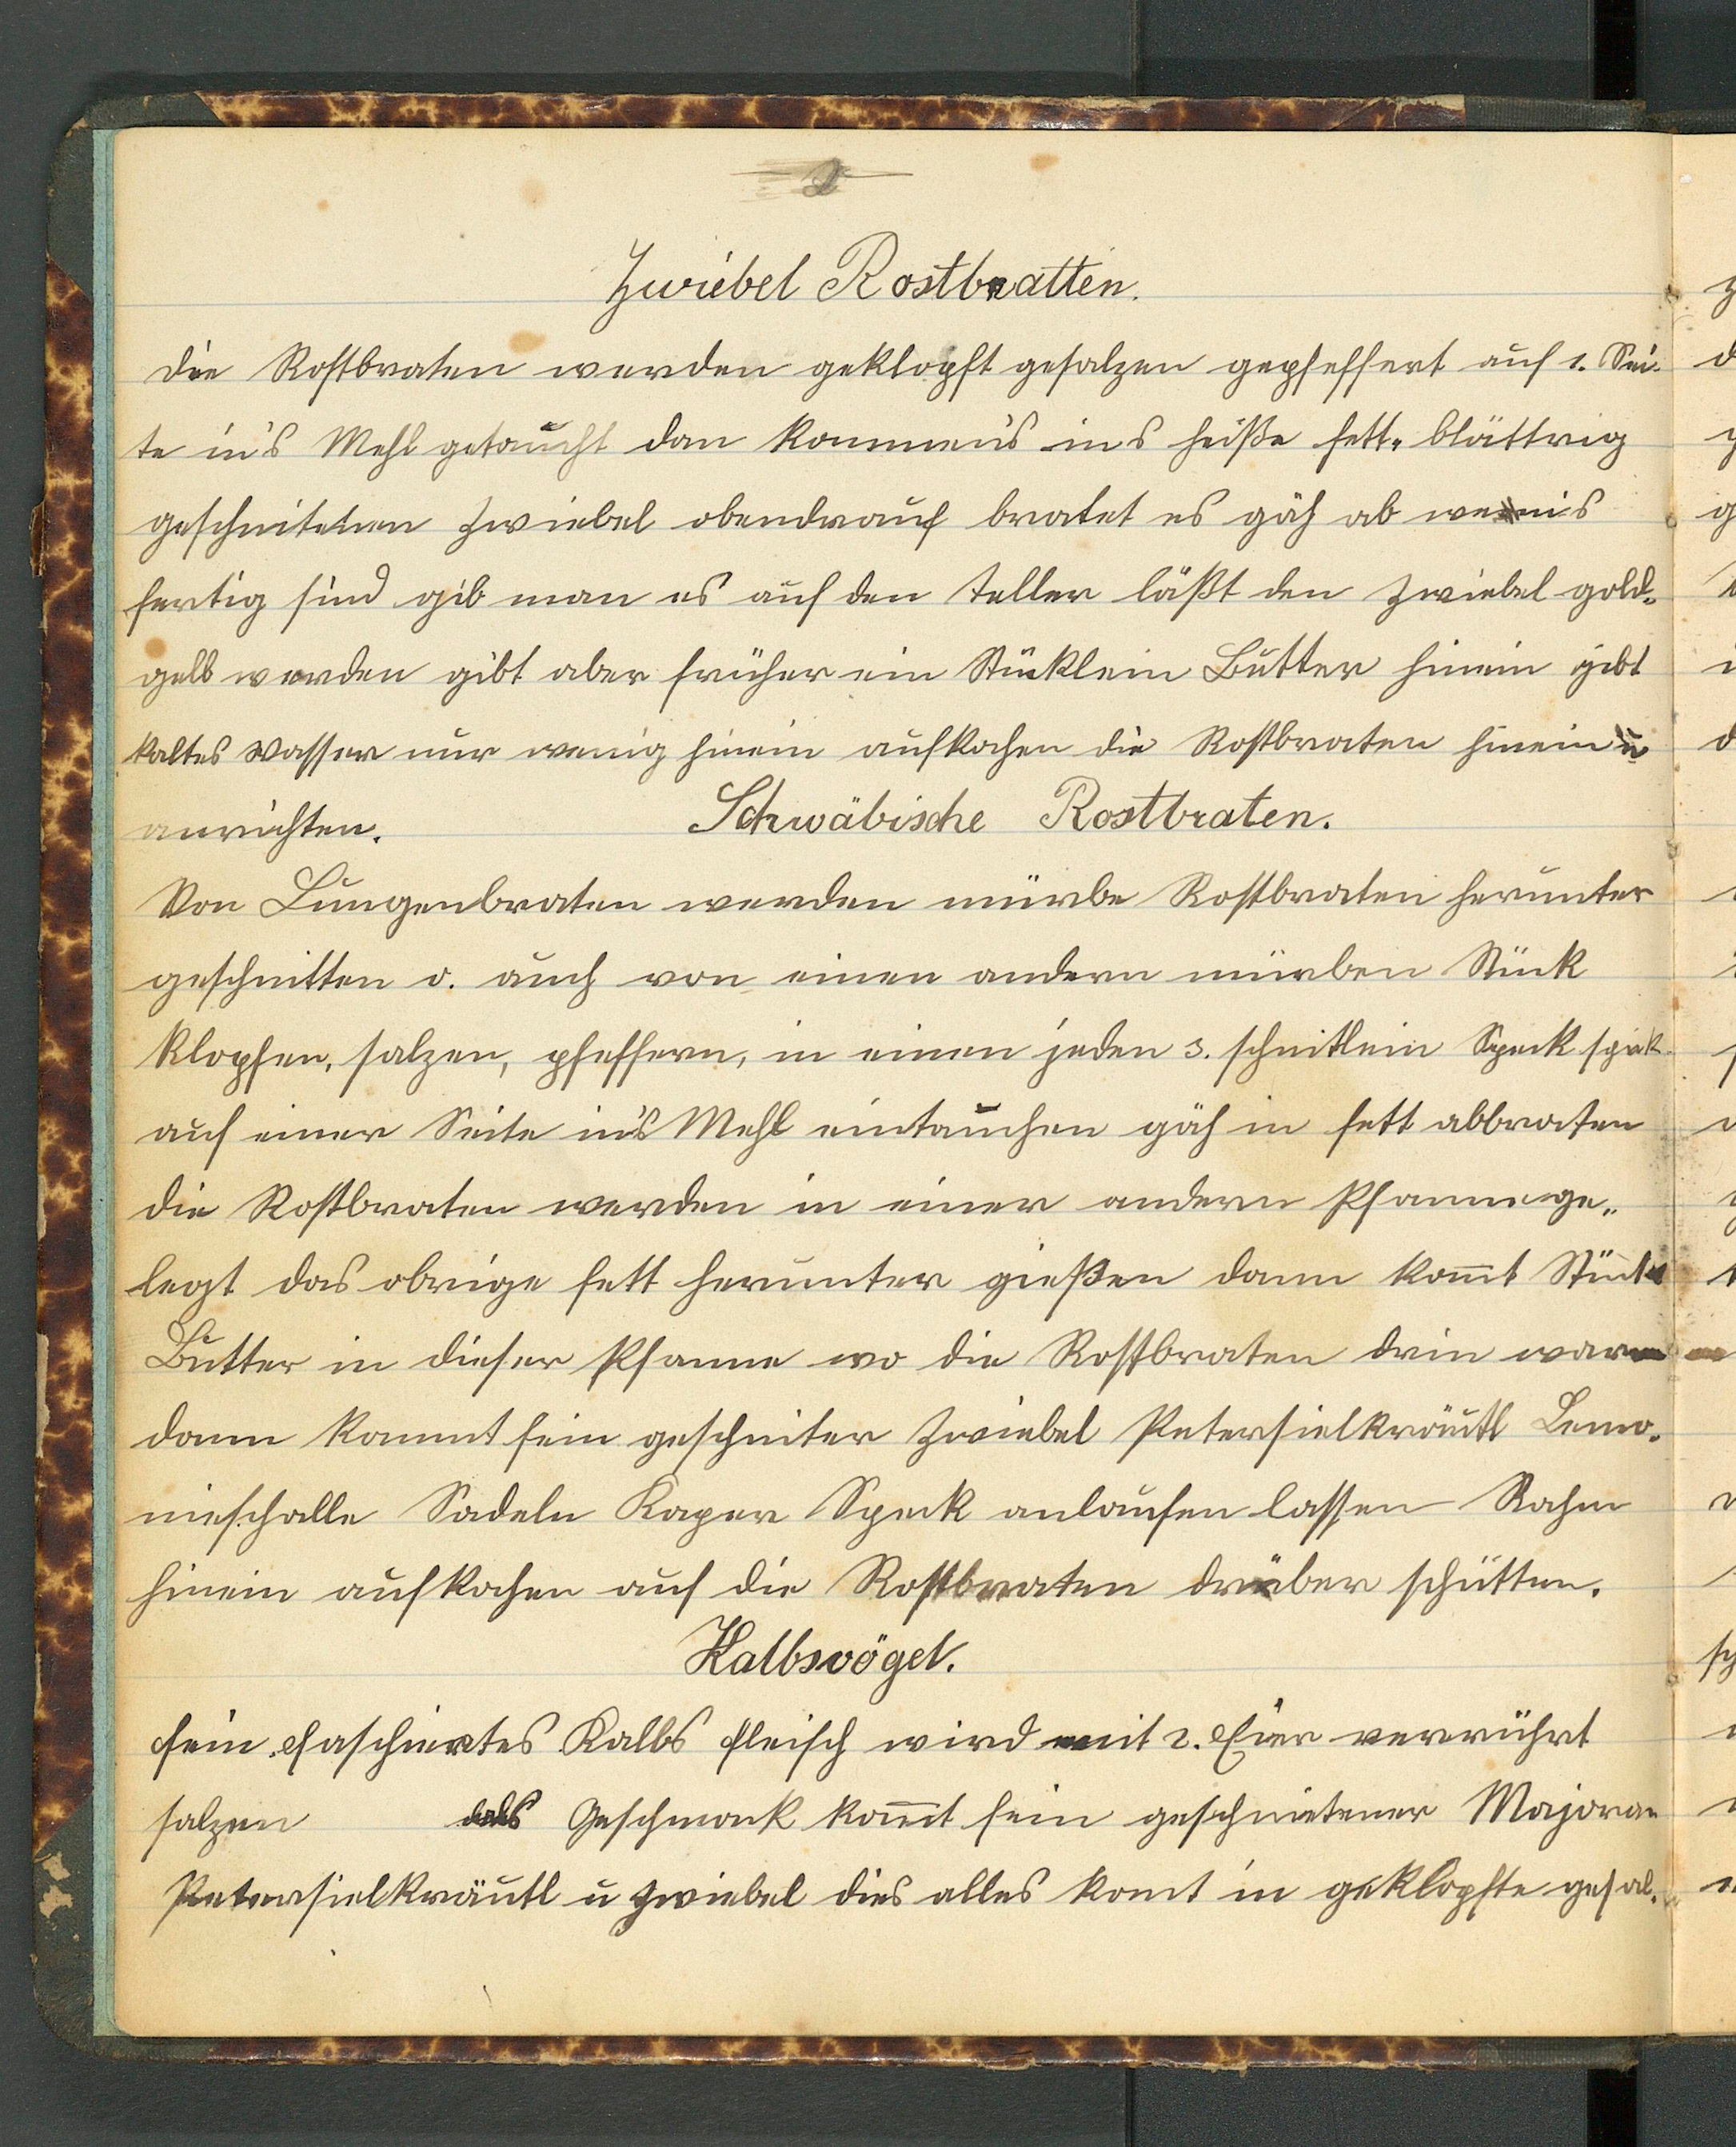 Zwiebel Rostbratten.
die Rostbraten werden geklopft gesalzen gepfeffert auf 1. Sei-
te in's Mehl getaucht dan kommen's ins heiße fett, blättrig
geschnitenen Zwiebel obendrauf bratet es gäh ab wenn's
fertig sind gib man es auf den Teller läßt den Zwiebel gold-
gelb werden gibt aber früher ein Stücklein Butter hinein gibt
kaltes Wasser nur wenig hinein aufkochen die Rostbraten hinein u
anrichten.
Schwäbische Rostbraten.
Von Lungenbraten werden mürbe Rostbraten herunter
geschnitten o. auch von einen andern mürben Stück
klopfen, salzen, pfeffern, in einen jeden 3. schnitlein Speck spick
auf einer Seite in's Mehl eintauchen gäh in fett abbraten
die Rostbraten werden in einer andern Pfanne ge-
legt das obrige fett herunter gießen dann kom̄t Stück
Butter in dieser Pfanne wo die Rostbraten drin waren
dann kommt fein geschniter Zwiebel Petersielkräutl Lemo-
nieschalle Sadeln Kaper Speck anlaufen lassen Rahm
hinein aufkochen auf die Rostbraten drüber schütten.
Kalbsvögel.
fein faschiertes Kalbs fleisch wird mit 2. Eier verrührt
salzen als Geschmack kom̄t fein geschnietener Majoran
Petersielkräutl u Zwiebel dies alles komt in geklopfte gesal-